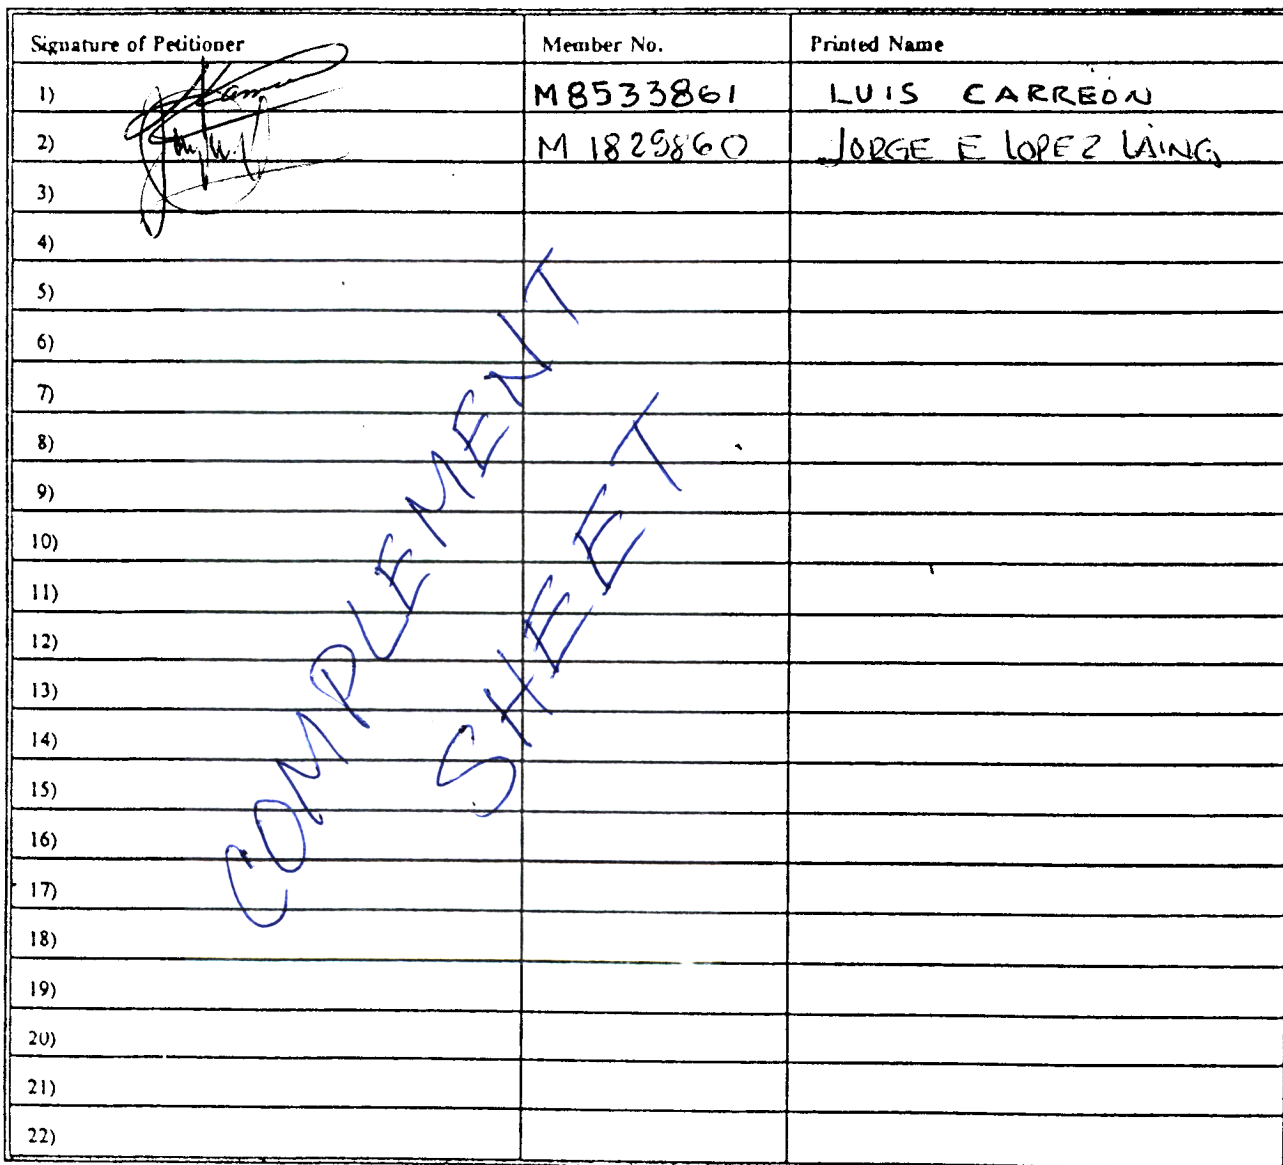 Signature of Petitioner Member No. Printed Name
1) M8533861 LUIS CARREON
2) M 1829860 JORGE E LOPEZ LAING
3)
4)
5)
6)
7)
8)
9)
10)
11)
12)
13)
14)
15)
16)
17)
18)
19)
20)
21)
22)
COMPLEMENT
SHEET